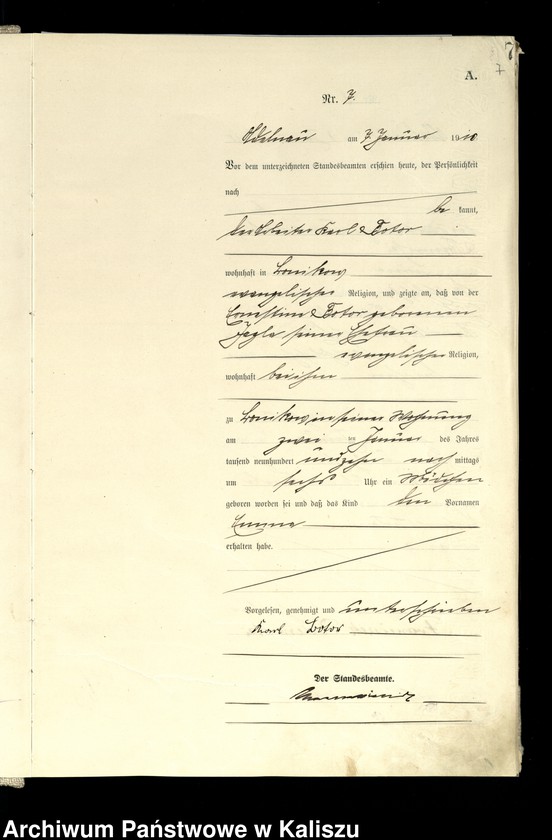 7
7
A.
Nr. 7.
Adelnau am 7. Januar 1910
Vor dem unterzeichneten Standesbeamten erschien heute, der Persönlichkeit
nach
be kannt,
der Arbeiter Karl Botor
wohnhaft in
evangelischer Religion, und zeigte an, daß von der
Ernestine Botor geborenen
seiner Ehefrau
evangelischer Religion,
wohnhaft bei ihm
zu in seiner Wohnung
am zwei ten Januar des Jahres
tausend neunhundert und zehn nach mittags
um sechs Uhr ein Mädchen
geboren worden sei und daß das Kind den Vornamen
Emma
erhalten habe.
Vorgelesen, genehmigt und unterschrieben
Karl Botor
Der Standesbeamte.
Archiwum Państwowe w Kaliszu